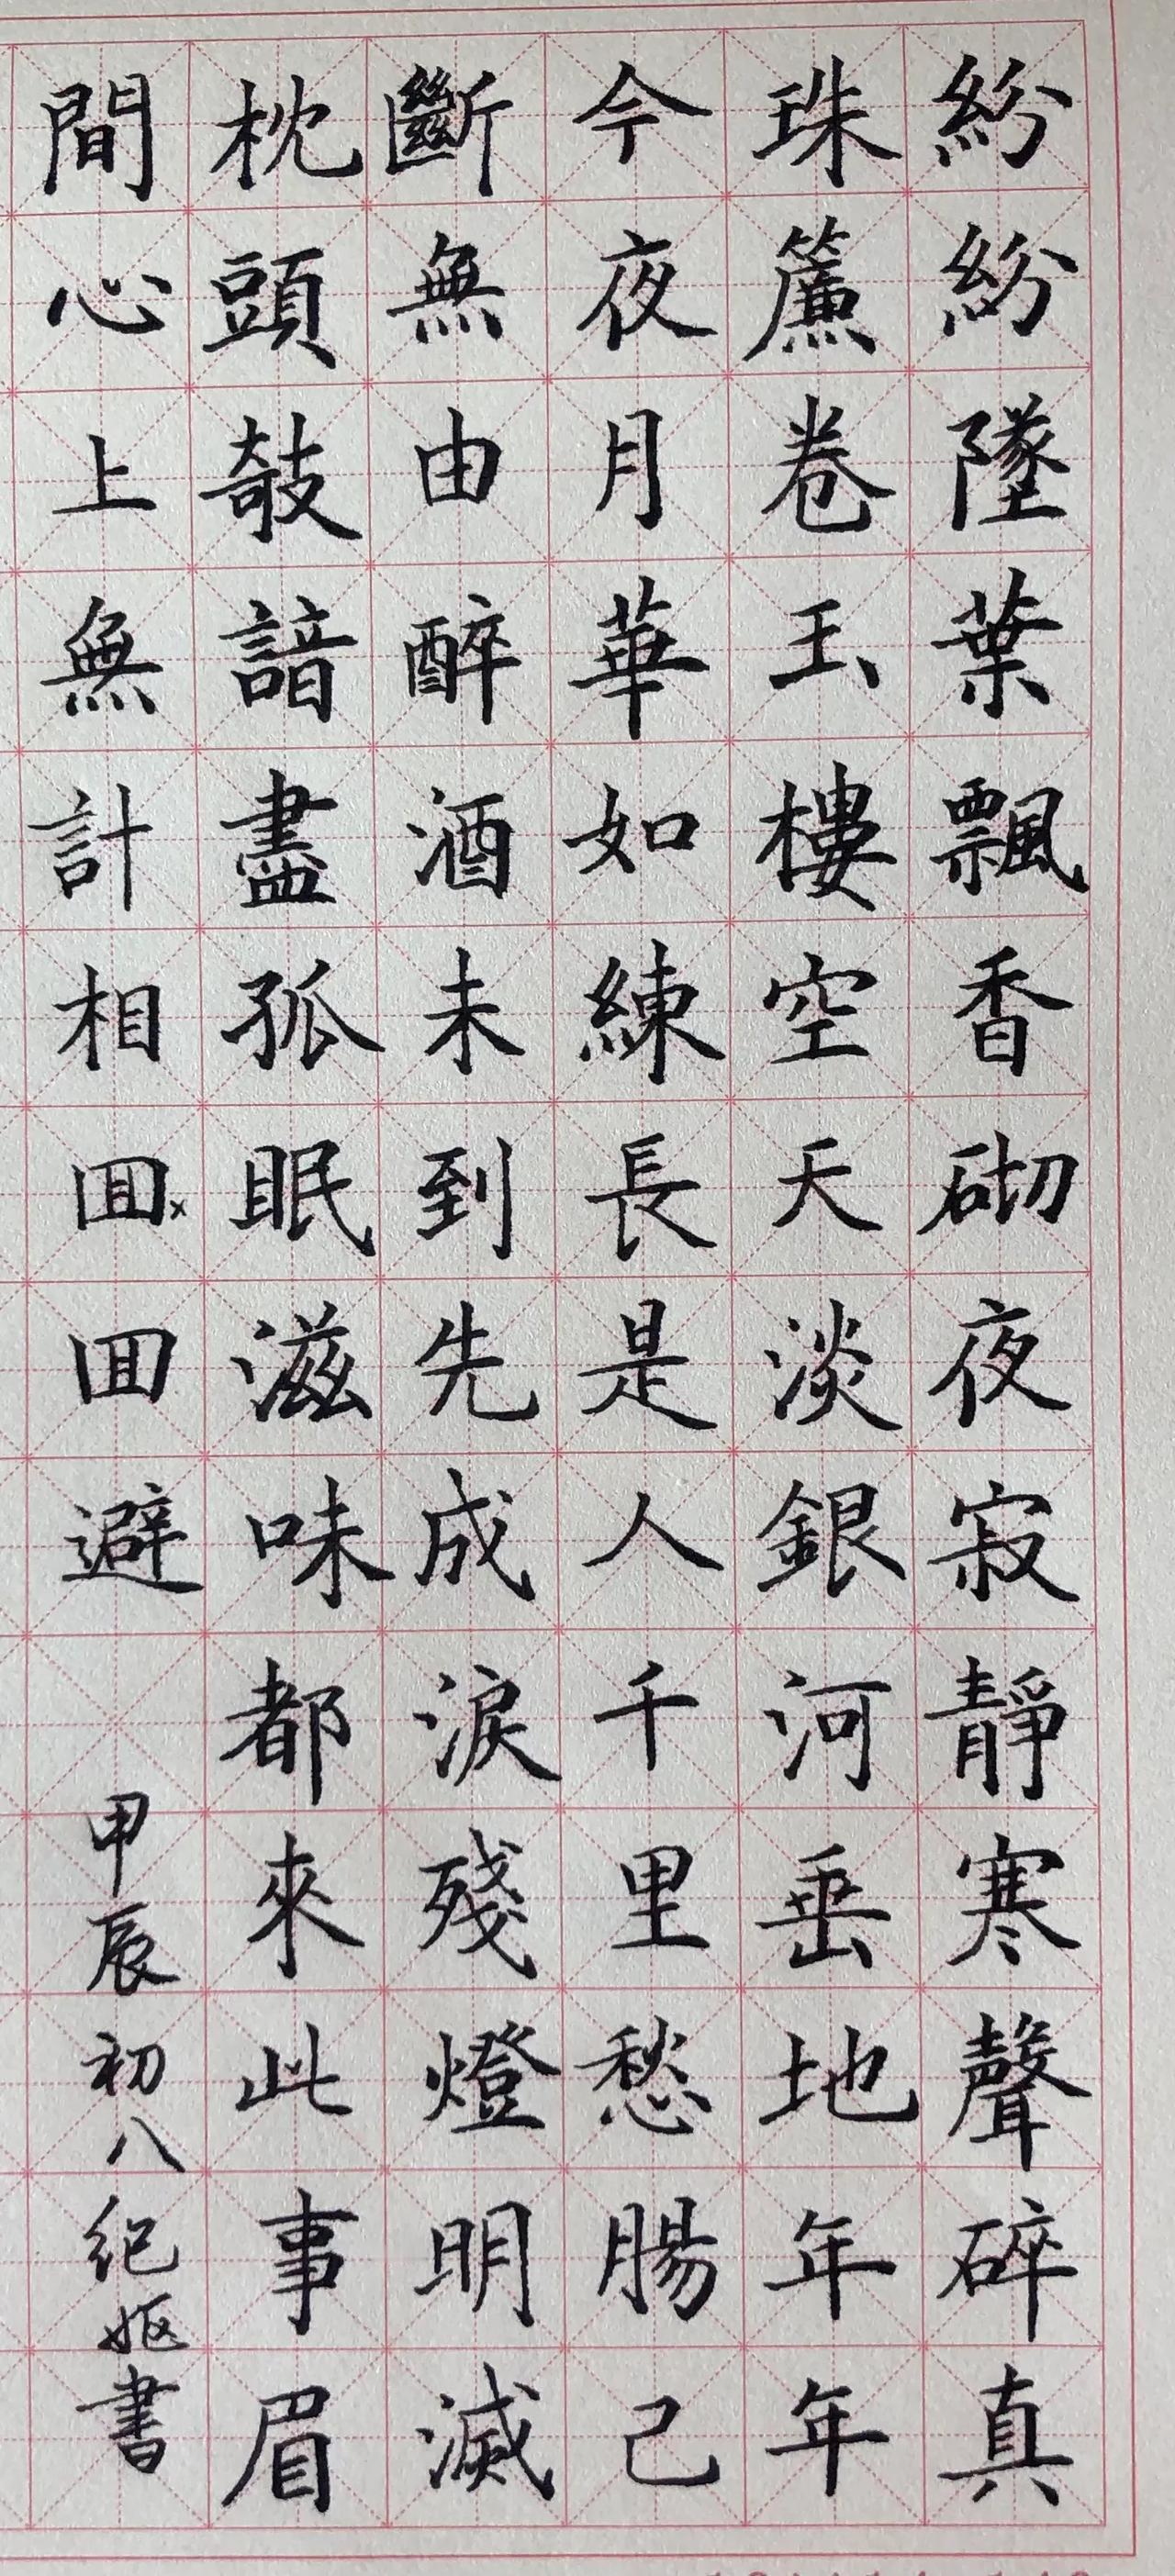 紛紛墜葉飄香砌夜寂靜寒聲碎真
珠簾卷玉樓空天淡銀河垂地年年
今夜月華如練長是人千里愁腸己
斷無由醉酒未到先成淚殘燈明滅
枕頭攲諳盡孤眠滋味都來此事眉
間心上無計相囬囬避
甲辰初八纪妪書